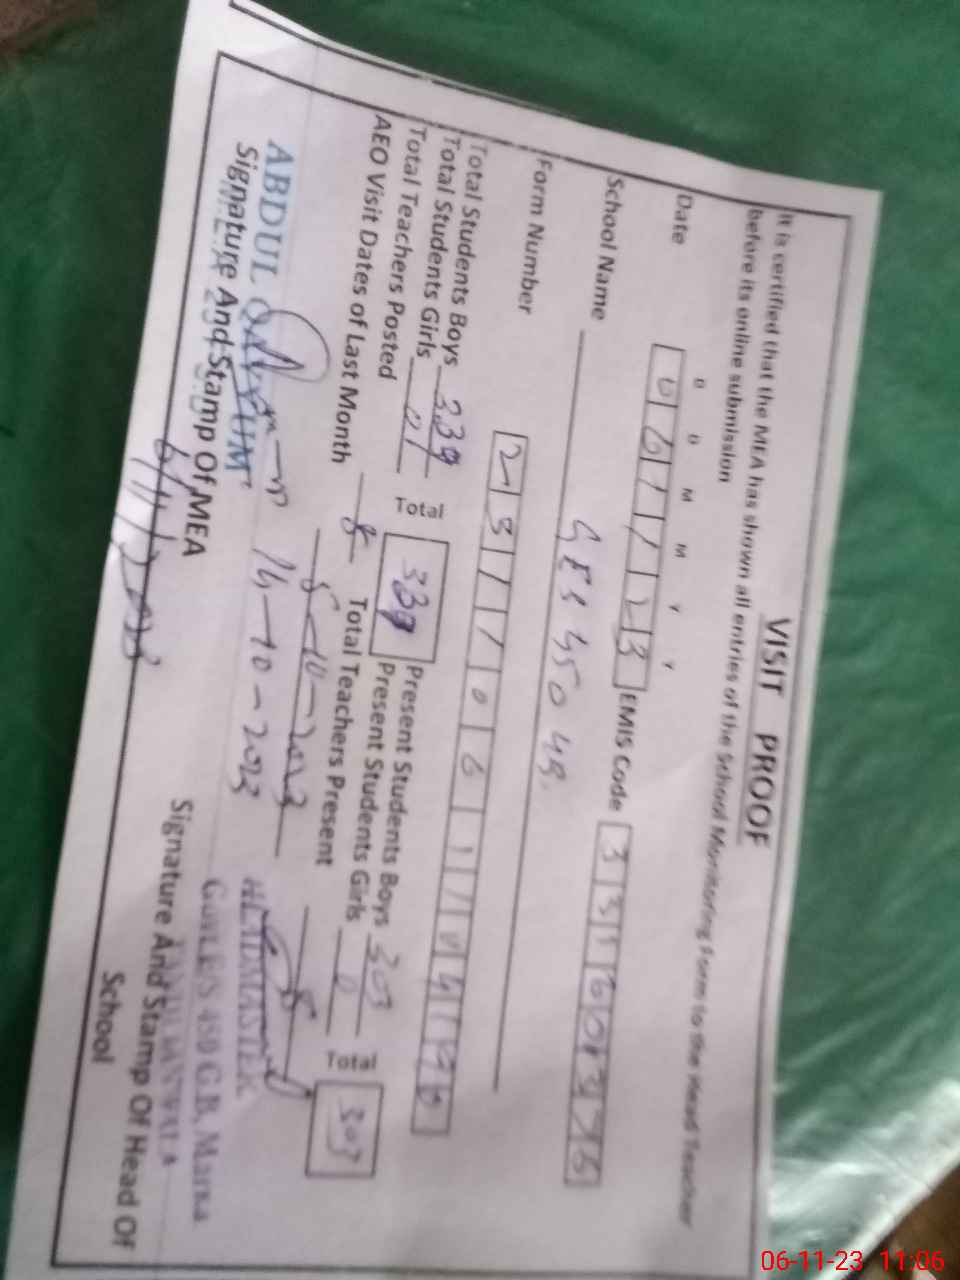 VISIT PROOF
It is certified that the MEA has shown all entries of the School Monitoring Form to the Head Teacher
before its online submission
D D M M Y Y
Date 06/11/23 EMIS Code
School Name GES 450 GB
Form Number
Total Students Boys 339 Total 339 Present Students Boys 303 Total 303
Total Students Girls 01 Present Students Girls 0
Total Teachers Posted 8 Total Teachers Present 8
AEO Visit Dates of Last Month 5-10-2023
14-10-2023
ABDUL QAYYUM
Signature And Stamp Of MEA
6/11/2023
HEADMASTER
Govt. E/S 450 G.B.
Signature And Stamp Of Head Of
School
06-11-23 11:06